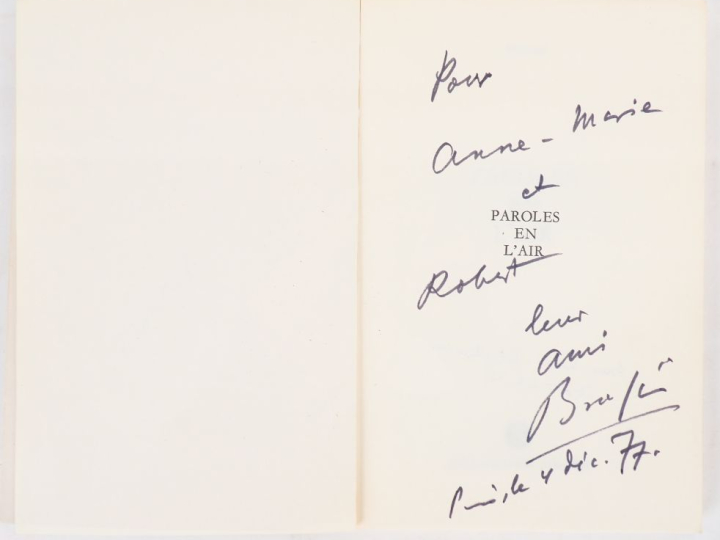 Pour
Anne-Marie
et
PAROLES
EN
L'AIR
Robert
leur
ami
Brassaï
Paris, le 4 déc. 77.